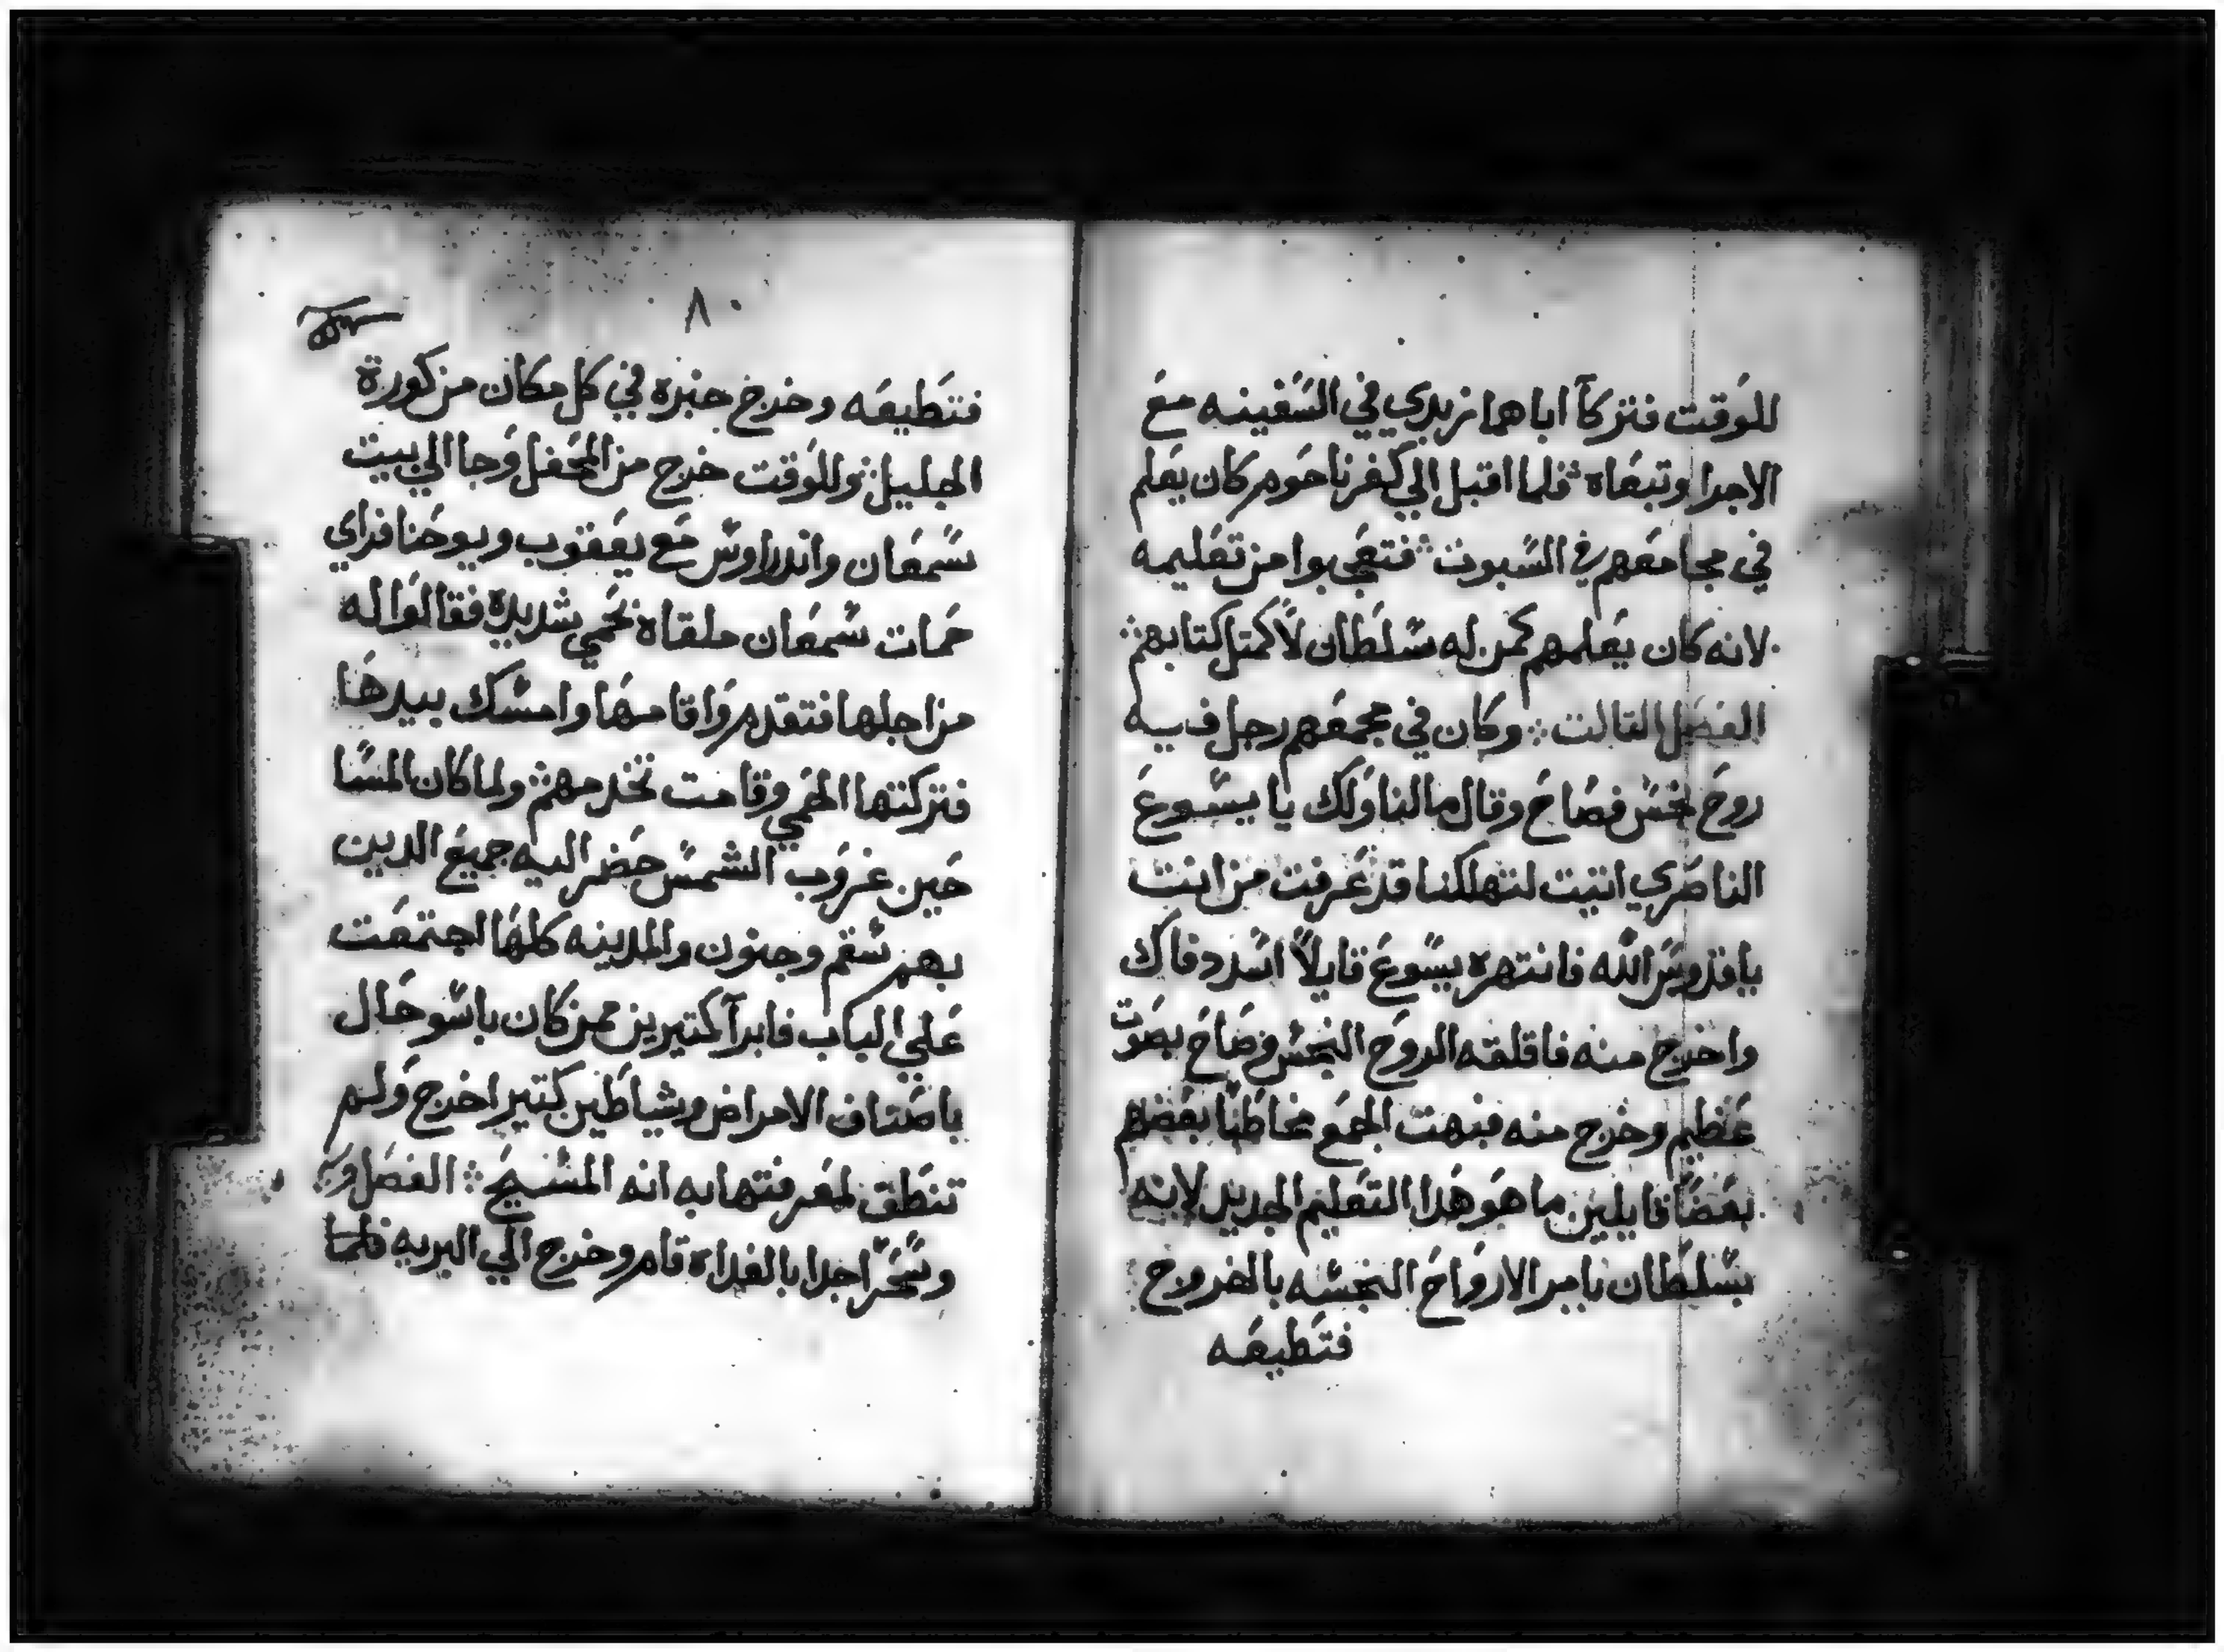 للوقت فتركا اباهما زبدي في السفينه مع
الاجرا وتبعاه فلما اقبل الي كفرناحوم كان يعلم
في مجامعهم في السبوت فتعجبوا من تعليمه
لانه كان يعلمهم كمن له سلطان لا كمتل كتابهم
الفصل التالت وكان في مجمعهم رجل فيه
روح نجس فصاح وقال مالنا ولك يا يسوع
الناصري اتيت لتهلكنا قد عرفت من انت
يا قدوس الله فانتهره يسوع قايلاً اسدد فاك
واخرج منه فاقلقه الروح النجس وصاح بصوت
عظيم وخرج منه فبهت الجمع مخاطباً بعضهم
بعضاً قايلين ما هو هدا التعليم الجديد لانه
بسلطان يامر الارواح النجسه بالخروج
فتطيعه
٨٠
فتطيعه وخرج خبره في كل مكان من كورة
الجليل وللوقت خرج من المحفل وجا الي بيت
سمعان واندراوس مع يعقوب ويوحنا فراي
حمات سمعان ملقاه بحمي شديده فقالوا له
من اجلها فتقدم واقامها وامسك بيدها
فتركتها الحمي وقامت تخدمهم ولما كان المسا
حين غروب الشمس حضر اليه جميع الدين
بهم سقم وجنون والمدينه كلها اجتمعت
علي الباب فابرآ كتيرين ممن كان باسو حال
باصناف الامراض وشياطين كتير اخرج ولم
تنطق لمعرفتها به انه المسيح الفصل
وسحراً جدا بالغداه قام وخرج الي البريه فلما